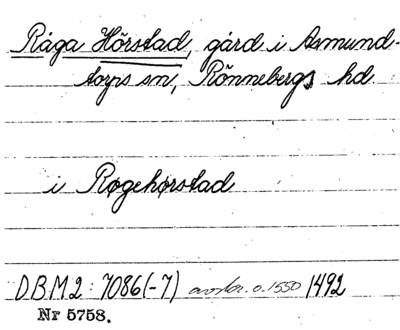 Råga Hörstad, gård i Asmund-
torps sn, Rönnebergs hd.
i Røgehørstad
D.B.M 2: 7086(-7) avskr. o. 1550 1492
Nr 5758.